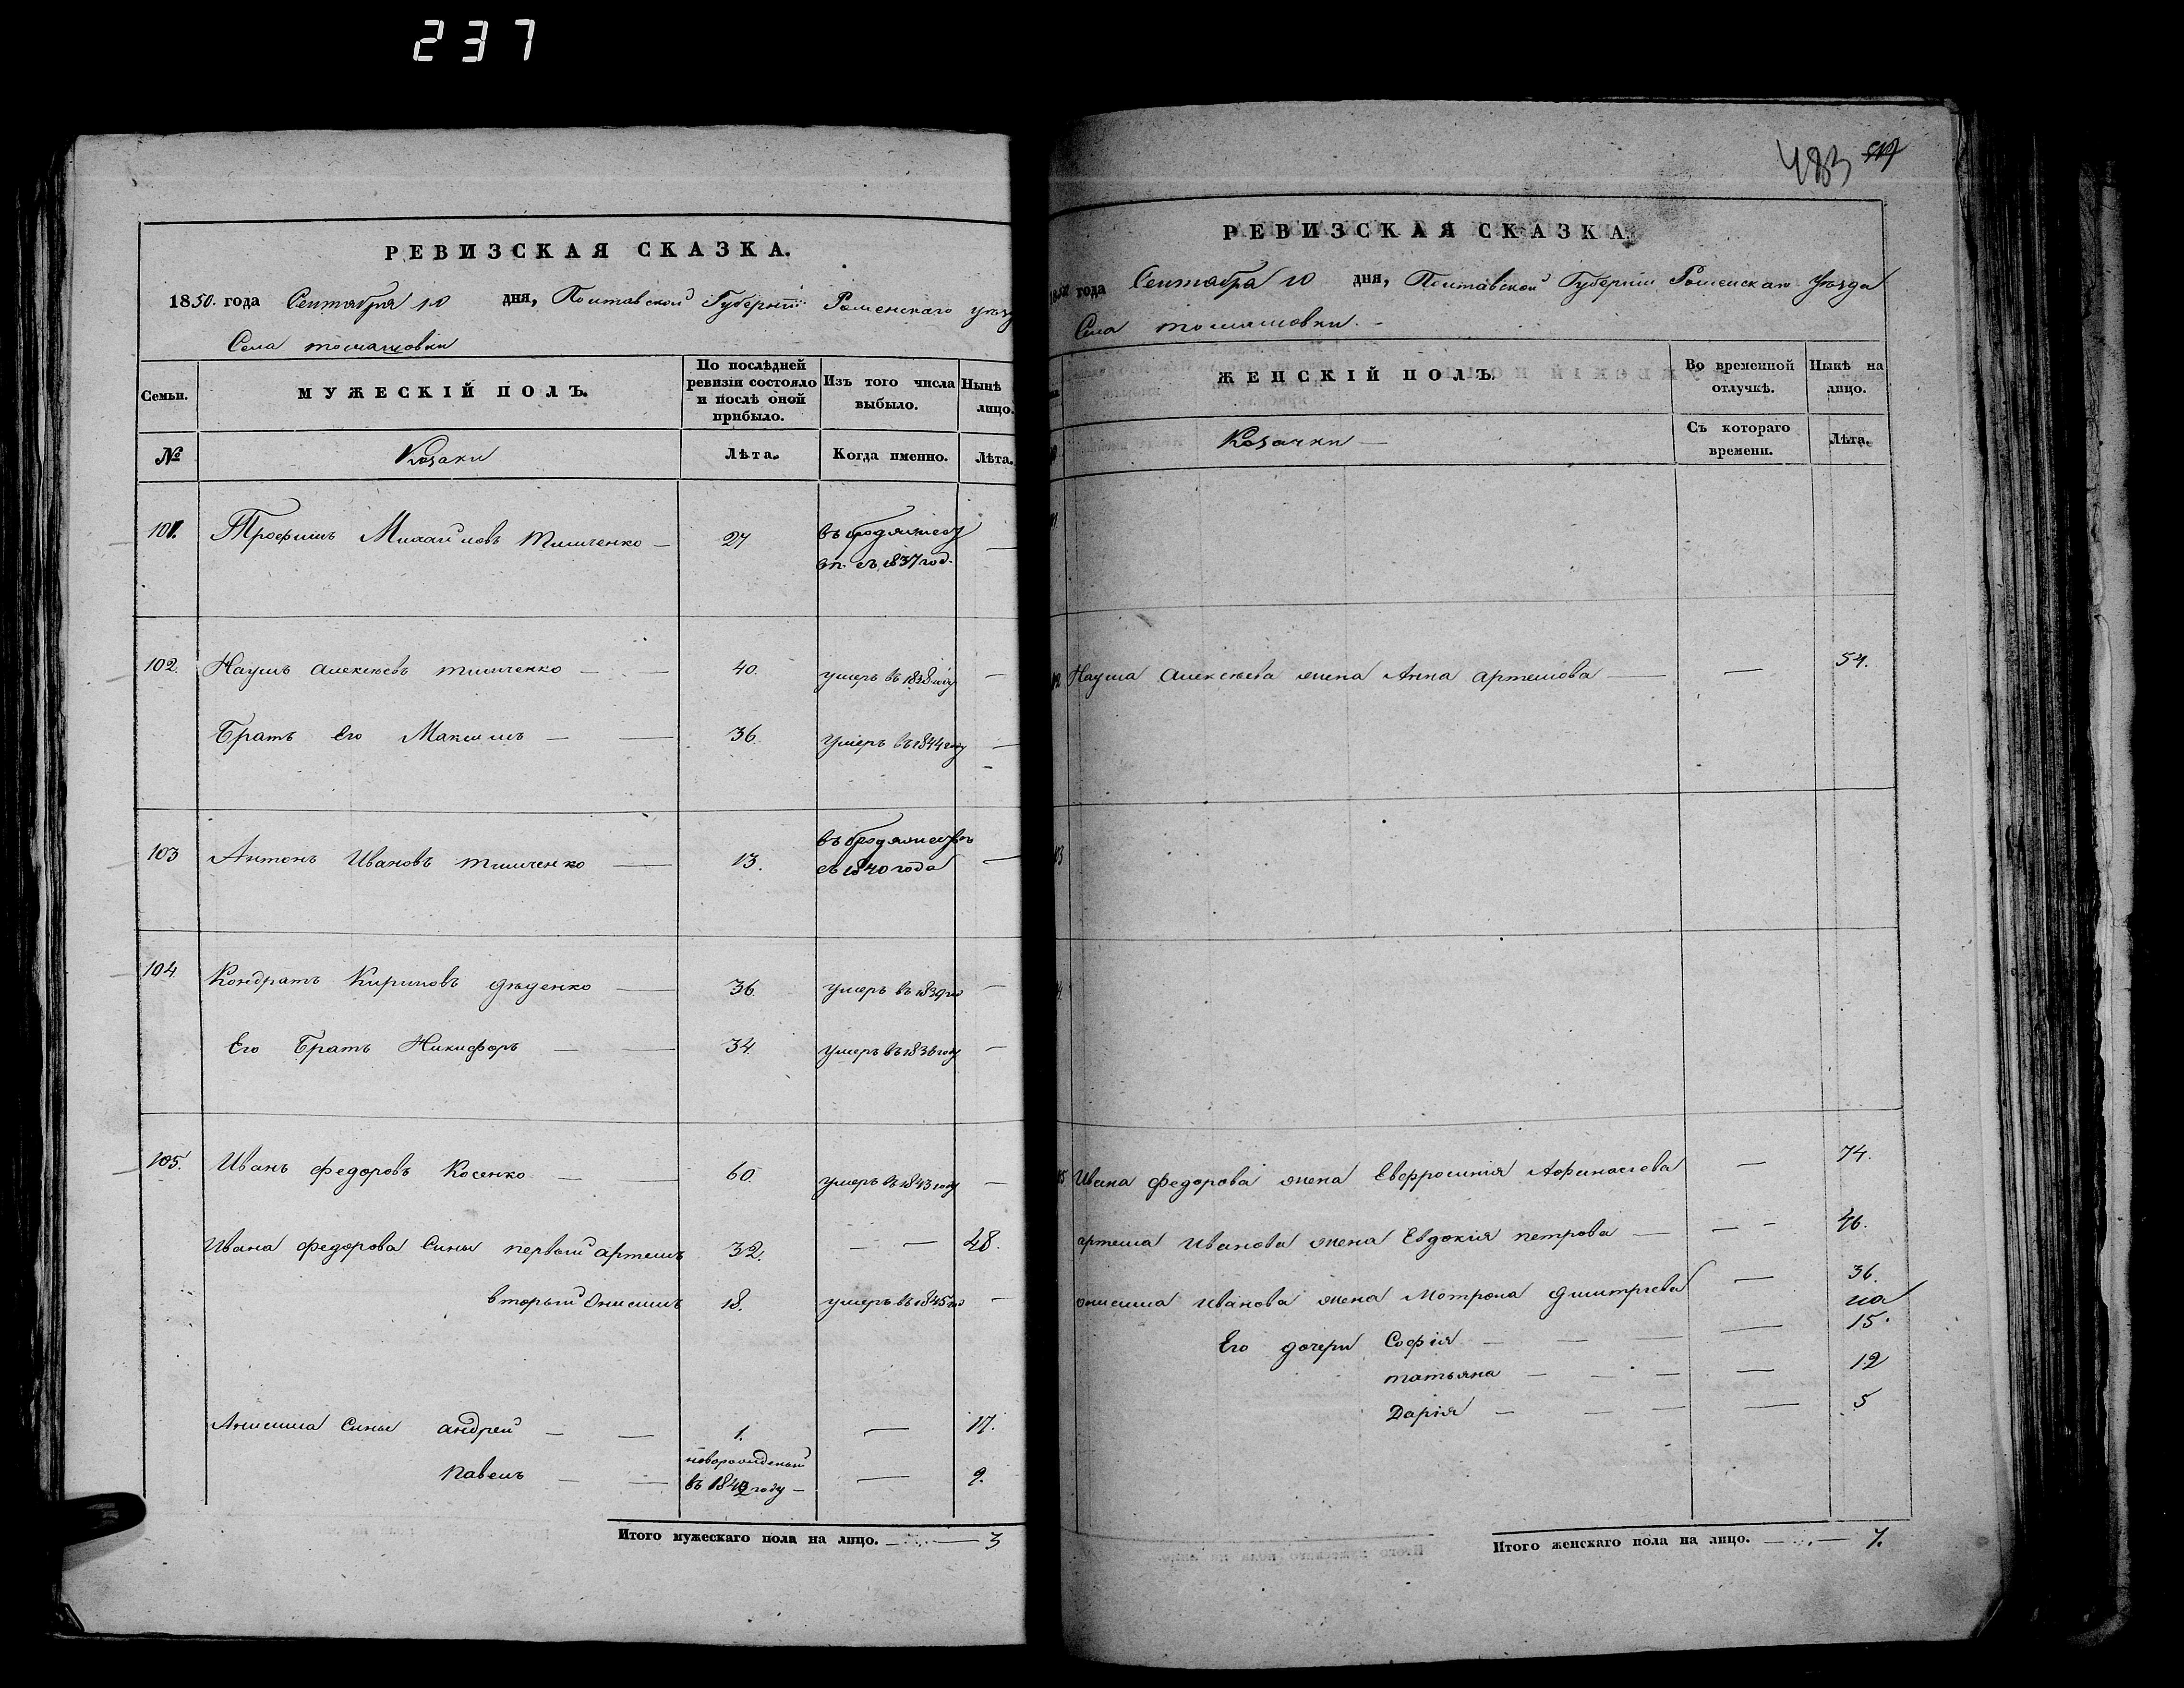 237
РЕВИЗСКАЯ СКАЗКА.
1850. года Сентября 10 дня, Полтавской Губернии Роменскаго
Села Томашовки
Семьи.
МУЖЕСКІЙ ПОЛЪ.
По послѣдней ревизіи состояло и послѣ оной прибыло.
Изъ того числа выбыло.
Нынѣ лицо.
№
Козаки
Лѣта.
Когда именно.
Лѣта.
101. Трофимъ Михайловъ Тимченко — 27 въ бродяжест
съ 1837 год. —
102. Наумъ Алексѣевъ Тимченко — — 40. умеръ въ 1838 году —
Братъ его Максимъ — — 36. умеръ въ 1844 году —
103 Антонъ Ивановъ Тимченко — 13. въ бродяжествѣ
съ 1840 года —
104. Кондратъ Кириловъ Дяденко — 36. умеръ въ 1839 го —
Его Братъ Никифоръ — — 34. умеръ въ 1836 году —
105. Иванъ Федоровъ Косенко — — 60. умеръ въ 1843 году —
Ивана Федорова Сыны первый Артемъ 32. — — 48.
вторый Онисимъ 18. умеръ въ 1845 го —
Анисима Сыны андрей — — 1. — 17.
новорожденый
Павелъ — — въ 184 году — — 9.
Итого мужескаго пола на лицо. — 3
483
РЕВИЗСКАЯ СКАЗКА
1850 года Сентября 10 дня, Полтавской Губерніи Роменскаго Уѣзда
Села Томашовки. -
ЖЕНСКІЙ ПОЛЪ.
Во временной отлучкѣ.
Нынѣ на лицо.
Козачки —
Съ котораго времени.
Лѣта.
Наума Алексѣева жена Анна Артемова — — 54.
Ивана Федорова жена Евфросинія Афанасіева — 74.
артема Иванова жена Евдокія Петрова — — - 46.
онисима Иванова жена Мотрона Димитріева — 36.
на
Его дочери Софія — — — — 15.
татьяна — — — — 12
Дарія — — — — 5
Итого женскаго пола на лицо. — 7.